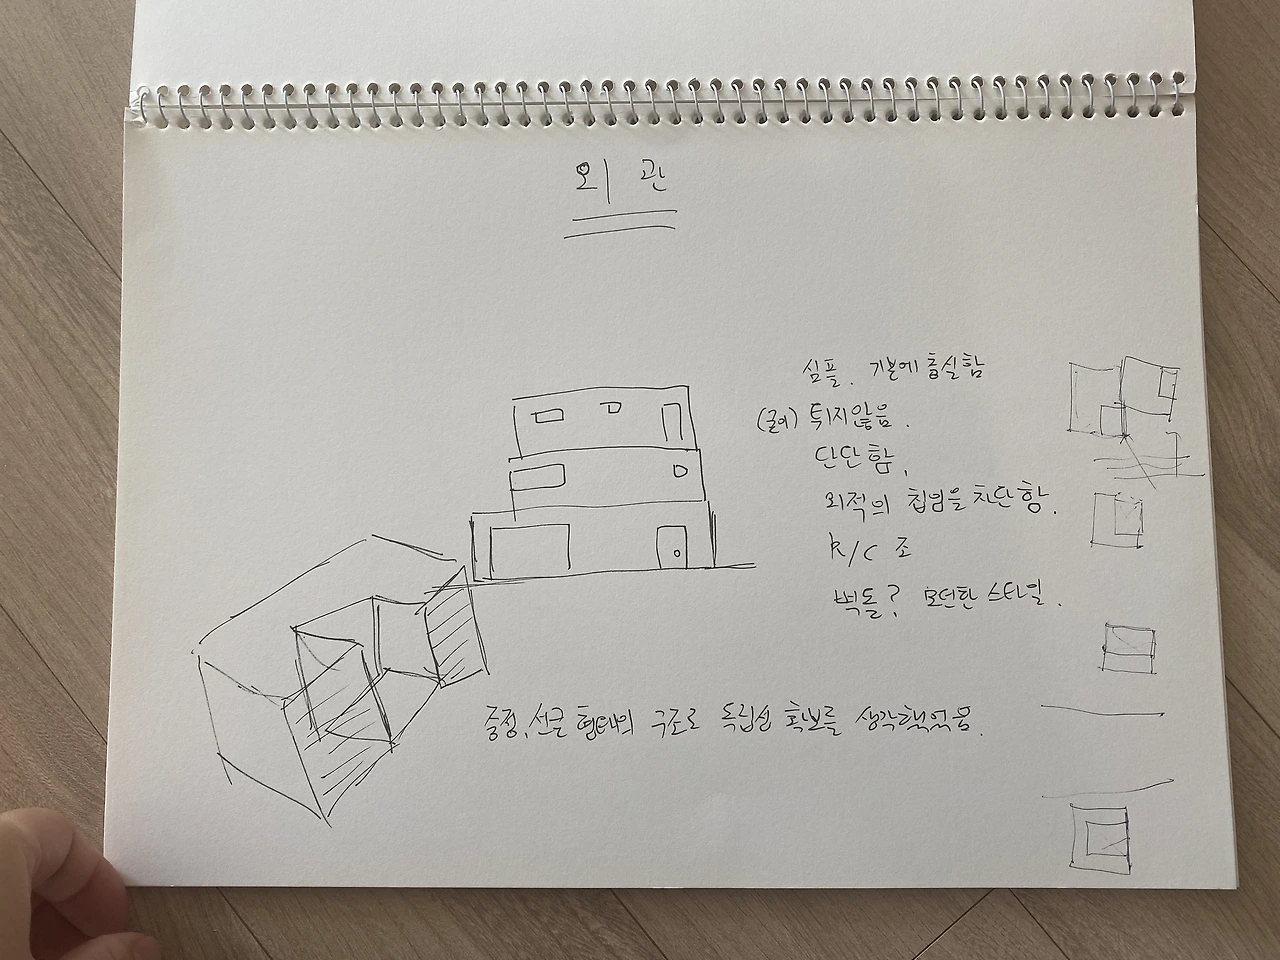 외 관
심플. 기본에 충실함
튀지않음.
단단함.
외적의 침입을 차단함.
R/C 조
벽돌? 모던한 스타일.
중정, 선큰 형태의 구조로 독립성 확보를 생각했음.